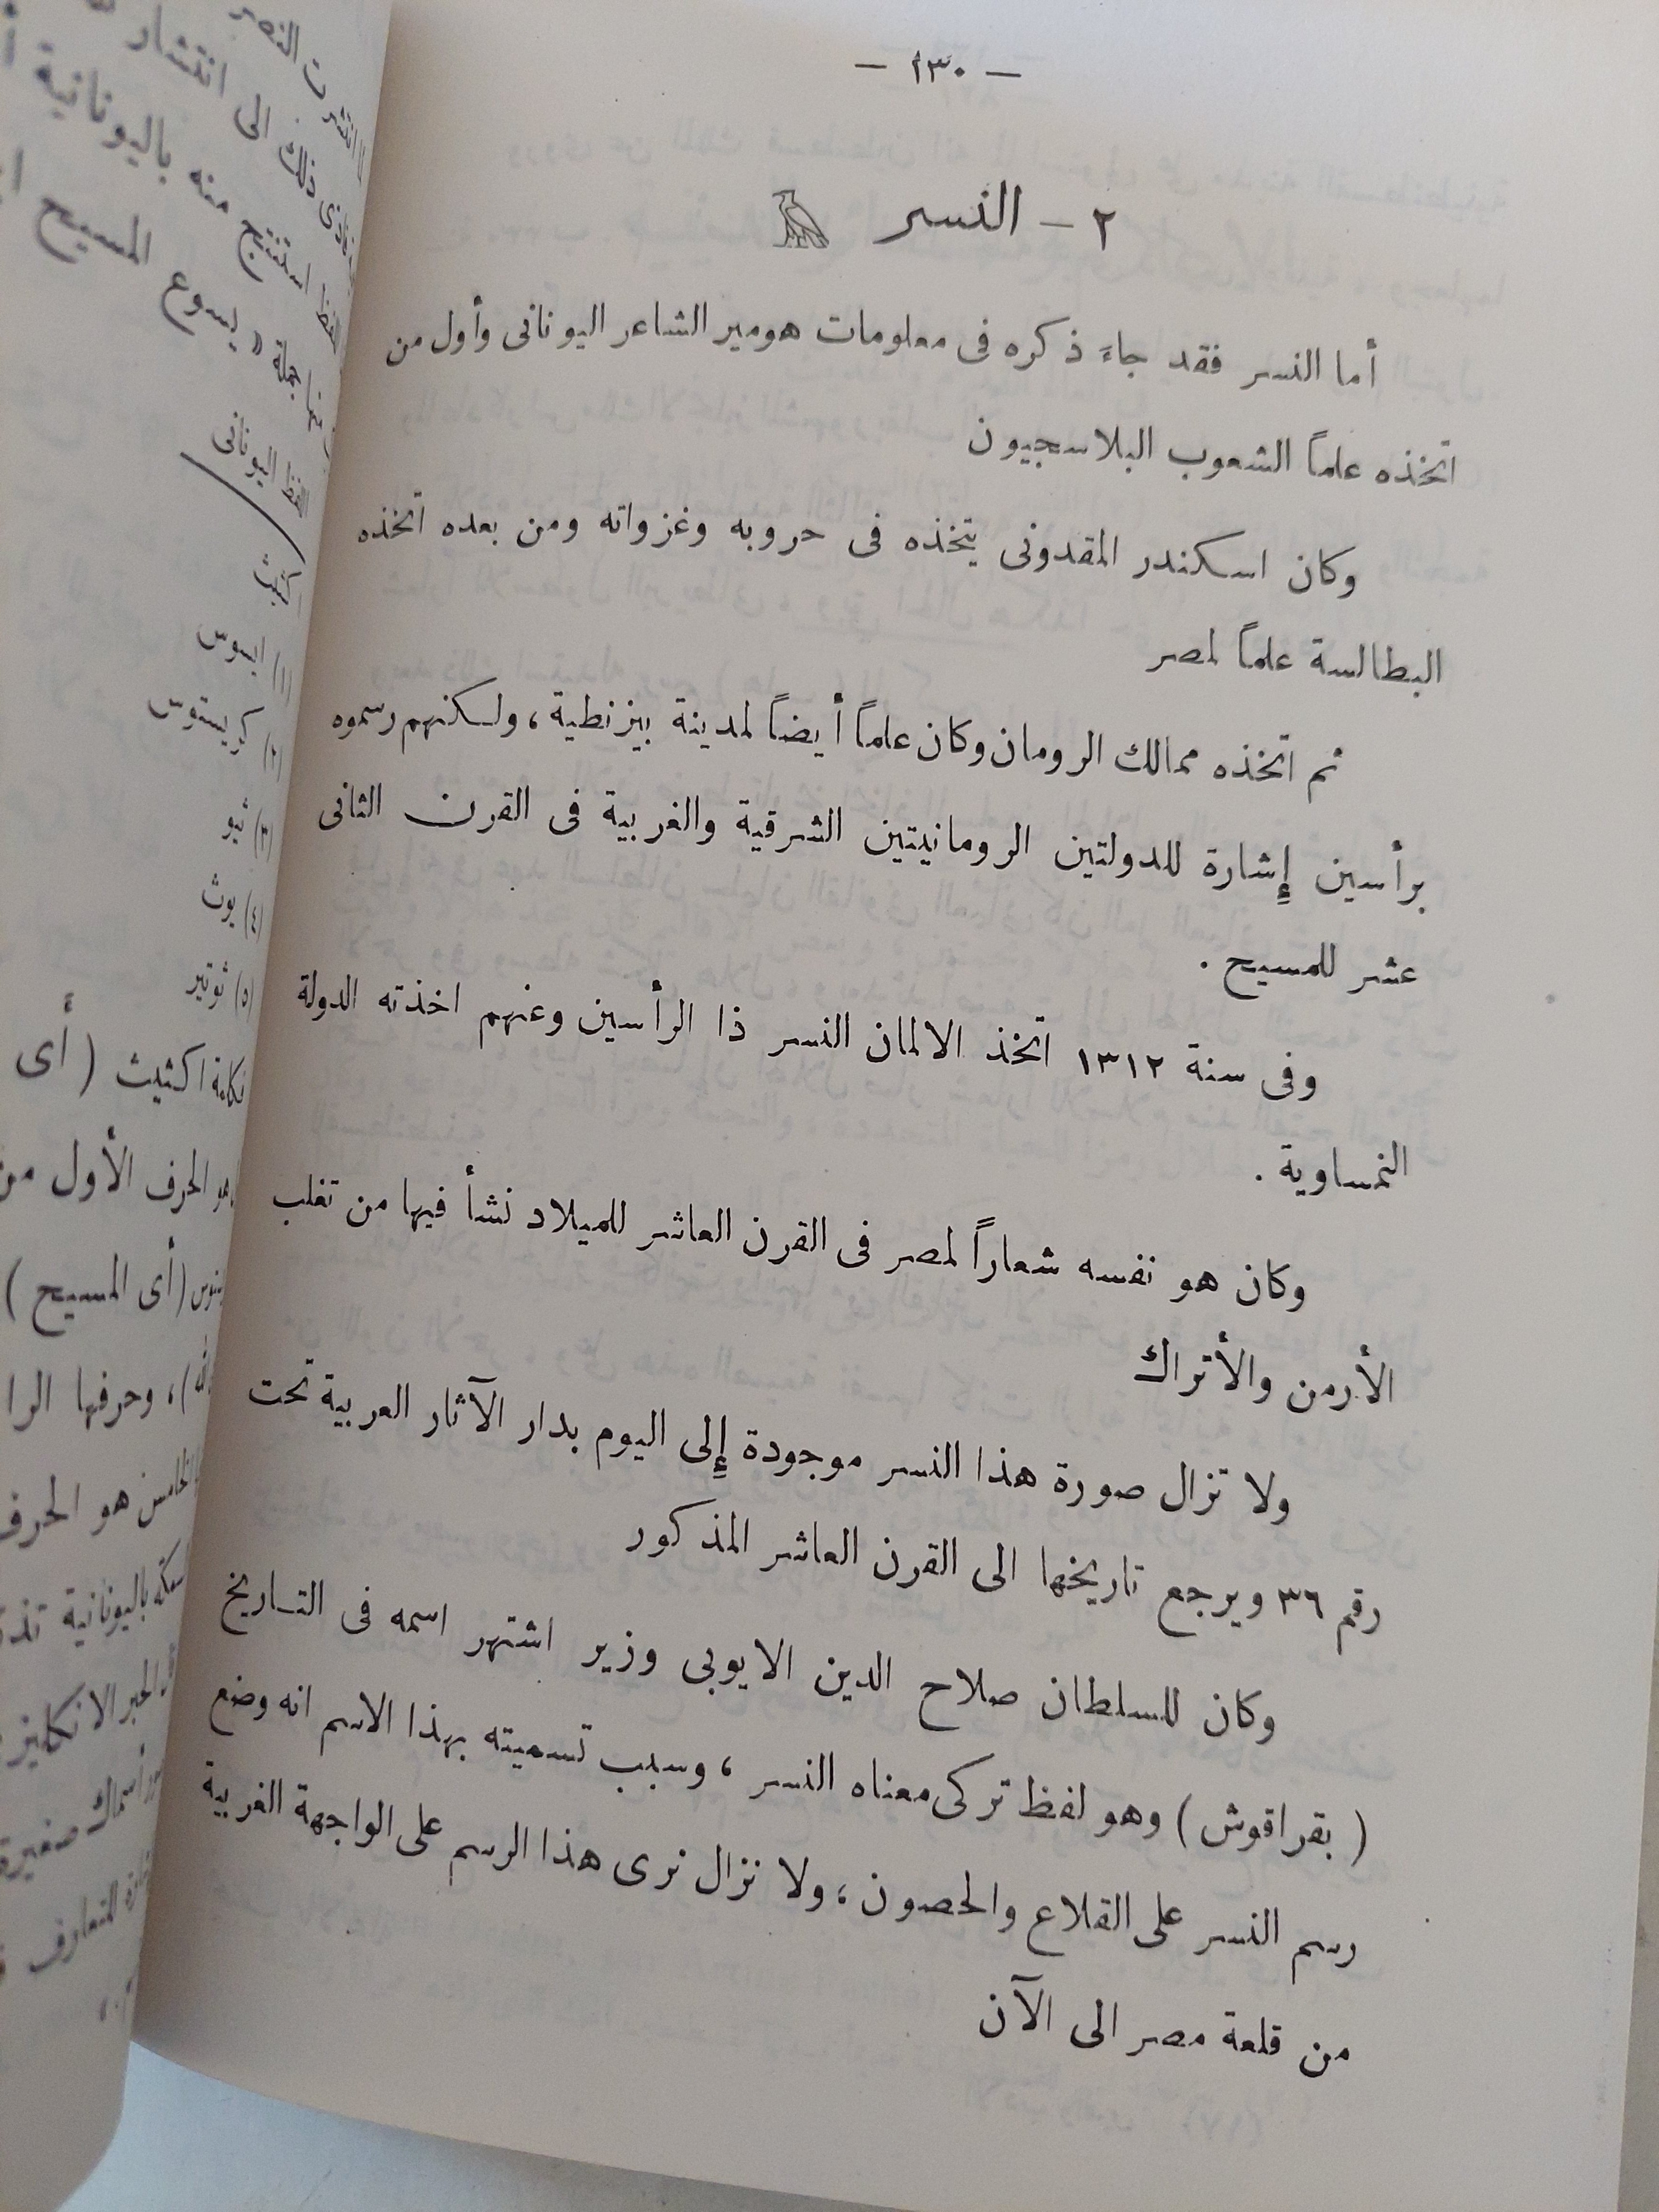 — ١٣٠ —
٢ - النسر
أما النسر فقد جاءَ ذكره فى معلومات هومير الشاعر اليونانى وأول من
اتخذه علماً الشعوب البلاسجيون
وكان اسكندر المقدونى يتخذه فى حروبه وغزواته ومن بعده اتخذه
البطالسة علماً لمصر
ثم اتخذه ممالك الرومان وكان علماً أيضاً لمدينة بيزنطية ، ولكنهم رسموه
برأسين إِشارة للدولتين الرومانيتين الشرقية والغربية فى القرن الثانى
عشر للمسيح .
وفى سنة ١٣١٢ اتخذ الالمان النسر ذا الرأسين وعنهم اخذته الدولة
النمساوية .
وكان هو نفسه شعاراً لمصر فى القرن العاشر للميلاد نشأ فيها من تغلب
الأرمن والأتراك
ولا تزال صورة هذا النسر موجودة إِلى اليوم بدار الآثار العربية تحت
رقم ٣٦ ويرجع تاريخها الى القرن العاشر المذكور
وكان للسلطان صلاح الدين الايوبى وزير اشتهر اسمه فى التاريخ
( بقراقوش ) وهو لفظ تركى معناه النسر ، وسبب تسميته بهذا الاسم انه وضع
رسم النسر على القلاع والحصون ، ولا نزال نرى هذا الرسم على الواجهة الغربية
من قلعة مصر الى الآن
انتشرت
ذلك الى انتشار
استنتج منه باليونانية
جملة « يسوع المسيح
اليونانى
اكثيث
(١) ايسوس
(٢) كريستوس
(٣) ثيو
(٤) يوث
(٥) ثوتير
اكثيث ( أى
الحرف الأول من
(أى المسيح )
، وحرفها الرا
هو الحرف
باليونانية
الحبر الانكليز
أسماك صغيرة
المتعارف